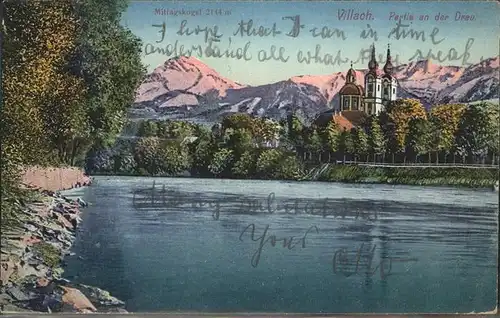 Mittagskogel 2144 m
Villach. Partie an der Drau.
I hope that I can in time
understand all what you speak
Many salutations
Your
Otto